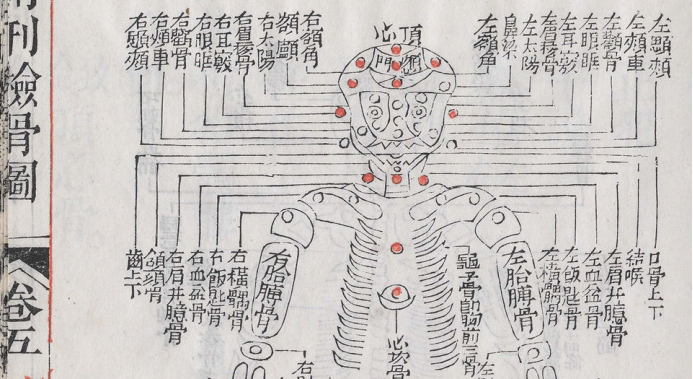 左顋頰
左頰車
左顴骨
左眼眶
左耳竅
左眉稜骨
左太陽
鼻梁
左額角
頂心
顖門
右額角
額顱
右太陽
右眉稜骨
右耳竅
右眼眶
右顴骨
右頰車
右顋頰
口骨上下
結喉
左肩井臆骨
左血盆骨
左飯匙骨
左橫髃骨
左胳膊骨
龜子骨即胸前三骨
心坎骨
右胳膊骨
右橫髃骨
右飯匙骨
右血盆骨
右肩井臆骨
頷頦骨
齒上下
左
右
刊檢骨圖
卷五